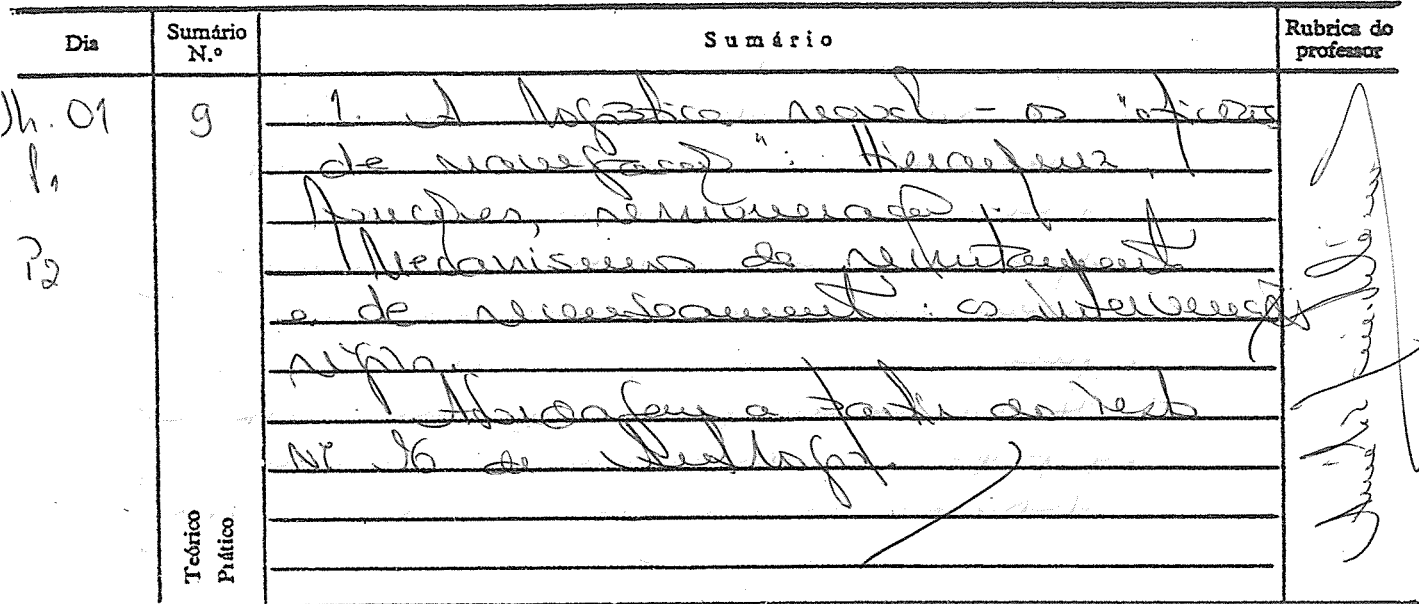 Dia
Sumário N.º
Sumário
Rubrica do professor
01
P1
P2
9
1. A logística naval - os "ofícios
de navegação": Hierarquia,
funções, remunerações.
Mecanismos de recrutamento
e de recenseamento: as intervenções
régias.
Abordagem a partir do texto
Nº 16 da Antologia.
Teórico
Prático